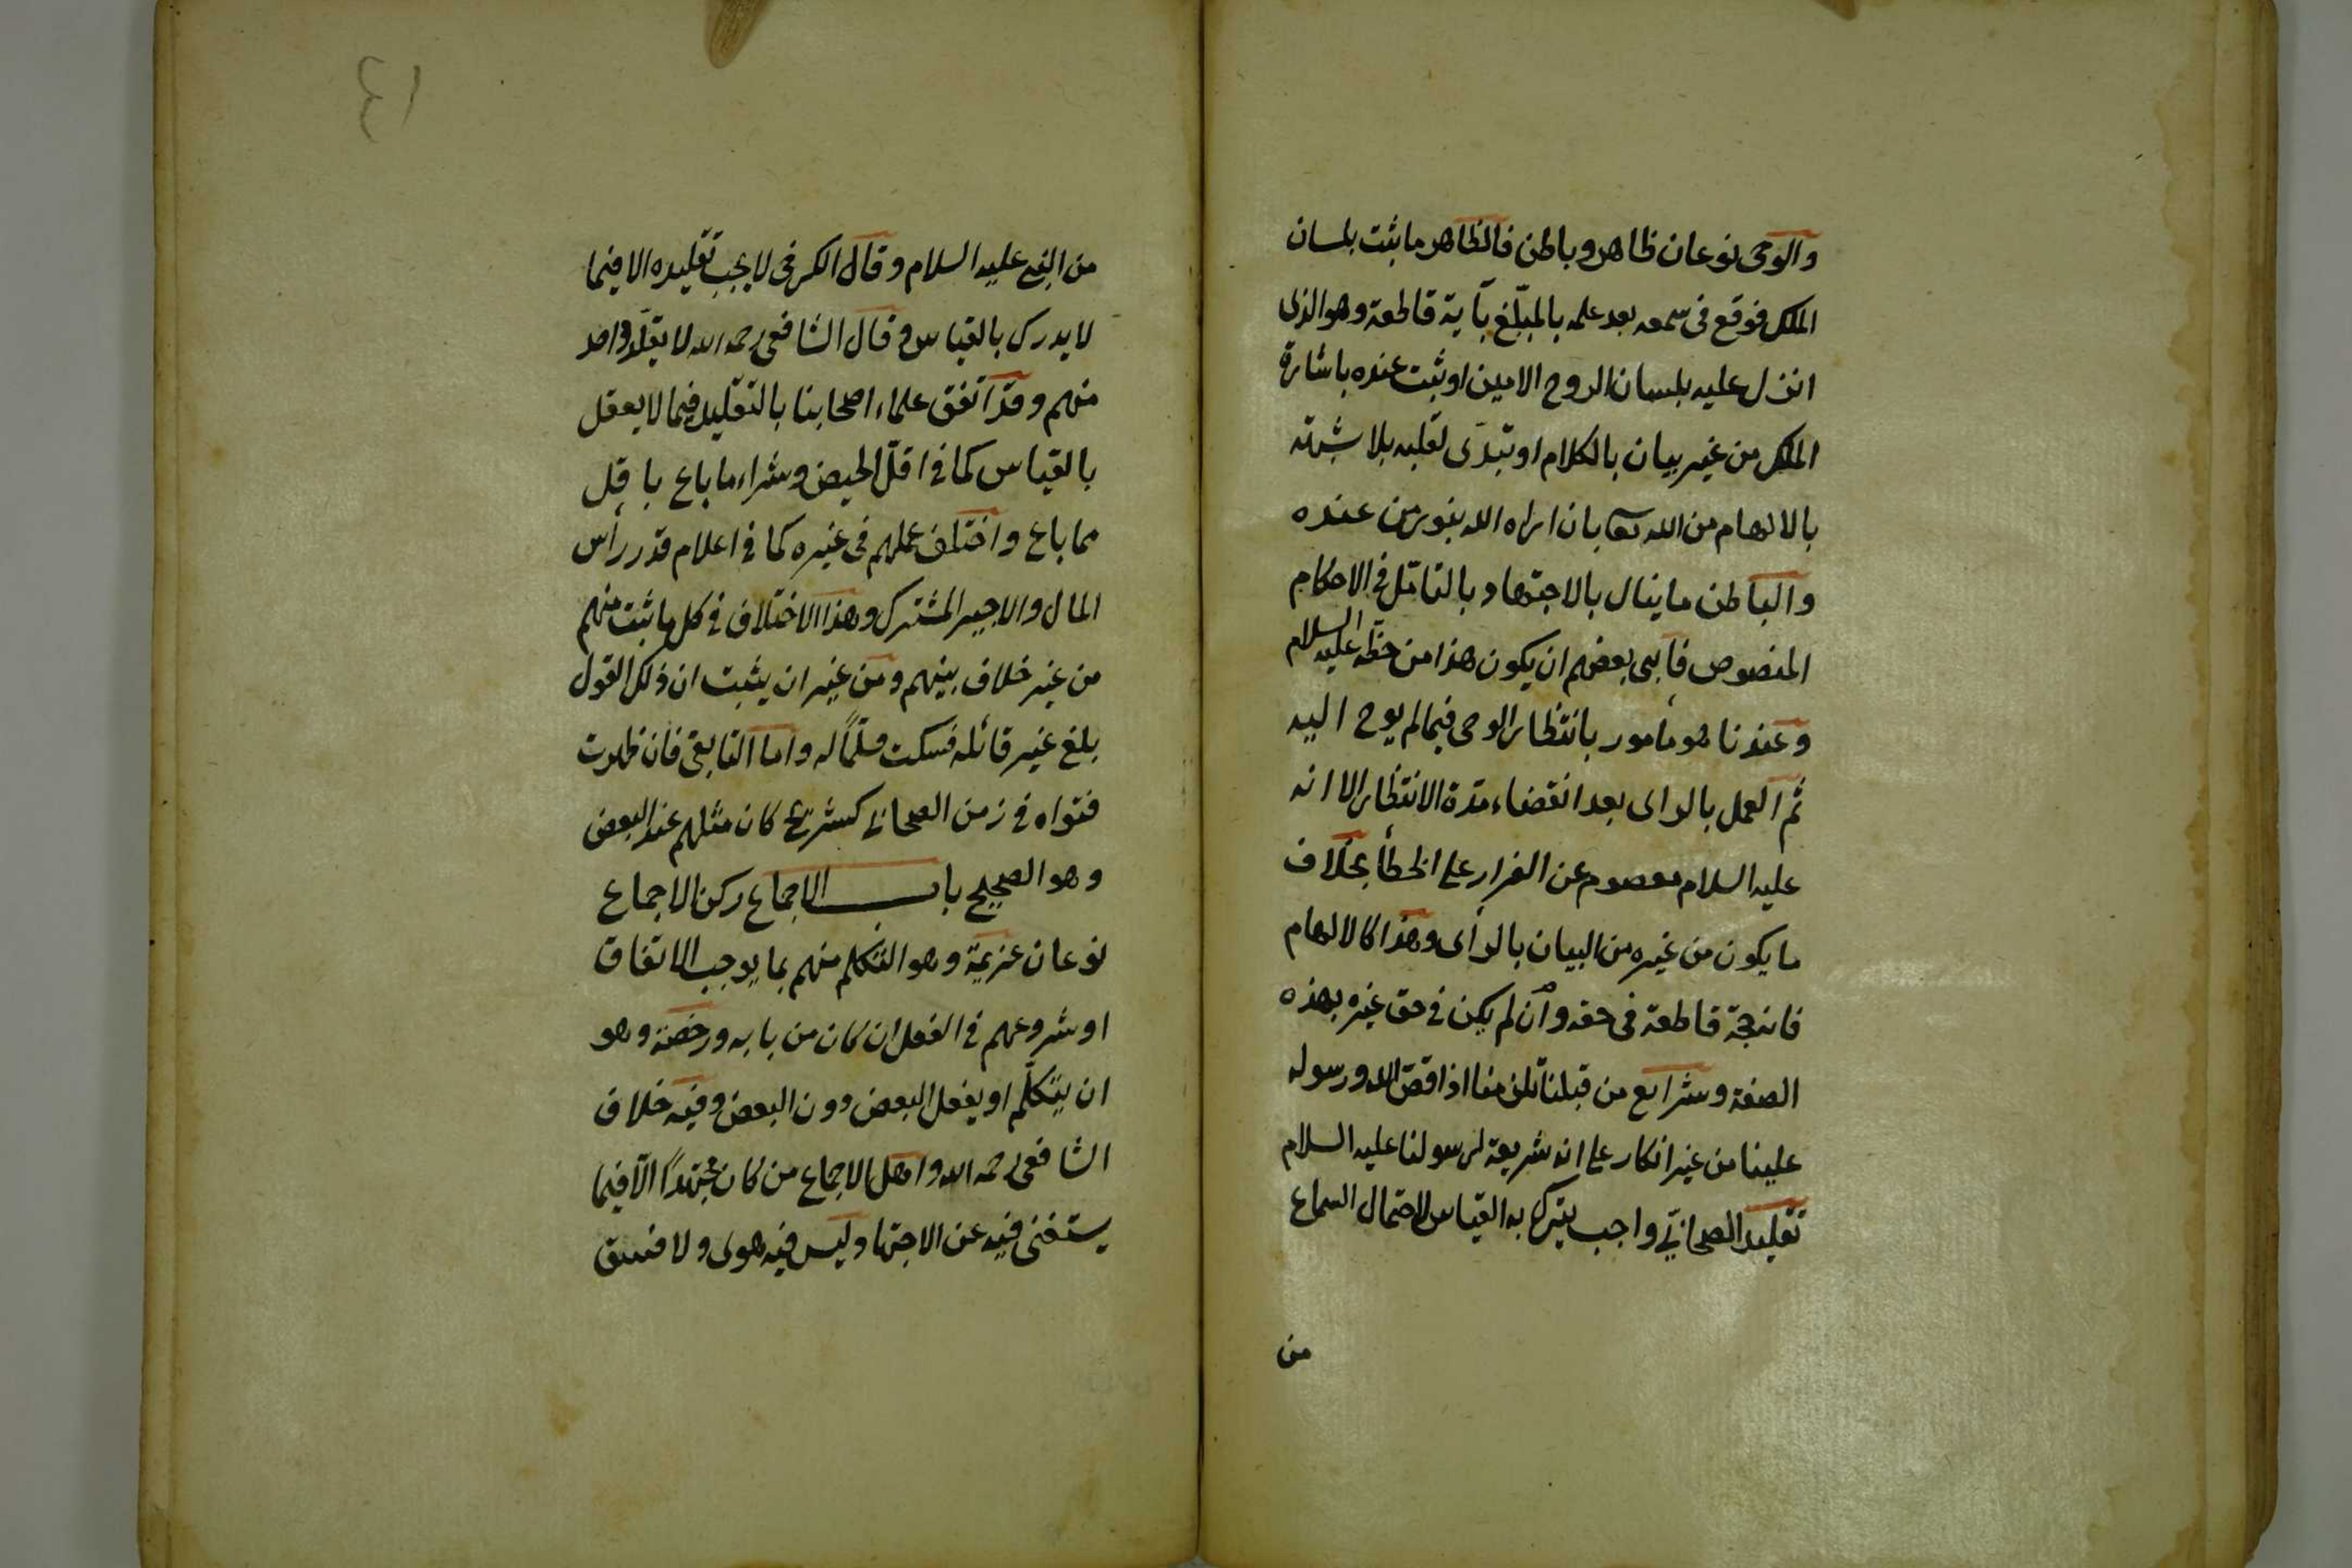 والوحى نوعان ظاهر وباطن فالظاهر ما ثبت بلسان
الملك فوقع فى سمعه بعد علمه بالمبلّغ بآية قاطعة وهو الذى
انزل عليه بلسان الروح الامين او ثبت عنده باشارة
الملك من غير بيان بالكلام او تبدّى لقلبه بلا شبهة
بالالهام من الله تعا بان اراه الله بنور من عنده
والباطن ما ينال بالاجتهاد بالتامّل فى الاحكام
المنصوص فأبى بعضهم ان يكون هذا من حظّه عليه السلام
وعندنا هو مأمور بانتظار الوحى فيما لم يوح اليه
ثم العمل بالراى بعد انقضاء مدّة الانتظار الا انه
عليه السلام معصوم عن القرار على الخطأ بخلاف
ما يكون من غيره من البيان بالرأى وهذا كالالهام
فانه حجّة قاطعة فى حقه وان لم يكن فى حق غيره بهذه
الصفة وشرايع من قبلنا تلزمنا اذا قصّ الله ورسوله
علينا من غير انكار على انه شريعة لرسولنا عليه السلام
تقليد الصحابىّ واجب يترك به القياس لاحتمال السماع
من
٤١
من النبى عليه السلام وقال الكرخى لا يجب تقليده الا فيما
لا يدرك بالقياس وقال الشافعى رحمه الله لا يقلّد واحد
منهم وقد اتفق علماء اصحابنا بالتقليد فيما لا يعقل
بالقياس كما فى اقلّ الحيض وشراء ما باع باقل
مما باع واختلف عملهم فى غيره كما فى اعلام قدر رأس
المال والاجير المشترك وهذا الاختلاف فى كل ما ثبت منهم
من غير خلاف بينهم ومن غير ان يثبت ان ذلك القول
بلغ غير قائله فسكت مسلّماً له واما التابعى فان ظهرت
فتواه فى زمن الصحابى كشريح كان مثلهم عند البعض
وهو الصحيح باب الاجماع ركن الاجماع
نوعان عزيمة وهو التكلم منهم بما يوجب الاتفاق
او شروعهم فى الفعل ان كان من بابه ورخصة وهو
ان يتكلّم او يفعل البعض دون البعض وفيه خلاف
الشافعى رحمه الله واهل الاجماع من كان مجتهداً الّا فيما
يستغنى فيه عن الاجتهاد وليس فيه هوى ولا فسق